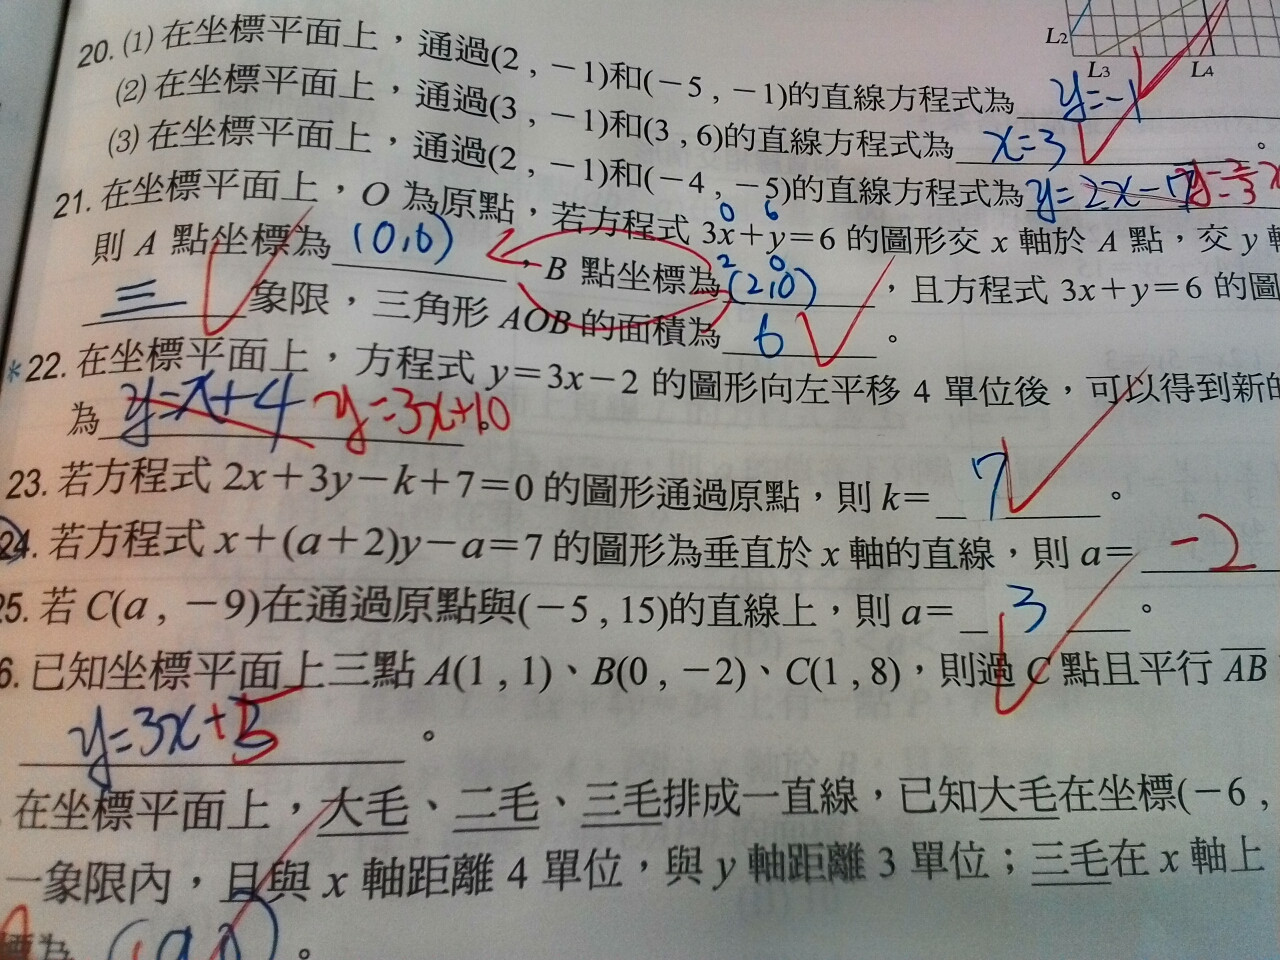 L2
L3
L4
20. (1) 在坐標平面上，通過(2 , －1)和(－5 , －1)的直線方程式為 y=-1
(2) 在坐標平面上，通過(3 , －1)和(3 , 6)的直線方程式為 x=3 。
(3) 在坐標平面上，通過(2 , －1)和(－4 , －5)的直線方程式為 y=2x-7
21. 在坐標平面上，O 為原點，若方程式 3x＋y＝6 的圖形交 x 軸於 A 點，交 y 軸
0 6
2 0
則 A 點坐標為 (0,6) ，B 點坐標為 (2,0) ，且方程式 3x＋y＝6 的圖
三 象限，三角形 AOB 的面積為 6 。
*22. 在坐標平面上，方程式 y＝3x－2 的圖形向左平移 4 單位後，可以得到新的
為 y=x+4 y=3x+10
23. 若方程式 2x＋3y－k＋7＝0 的圖形通過原點，則 k＝ 7 。
24. 若方程式 x＋(a＋2)y－a＝7 的圖形為垂直於 x 軸的直線，則 a＝ -2
25. 若 C(a , －9)在通過原點與(－5 , 15)的直線上，則 a＝ 3 。
6. 已知坐標平面上三點 A(1 , 1)、B(0 , －2)、C(1 , 8)，則過 C 點且平行 AB
y=3x+5 。
在坐標平面上，大毛、二毛、三毛排成一直線，已知大毛在坐標(－6 ,
一象限內，且與 x 軸距離 4 單位，與 y 軸距離 3 單位；三毛在 x 軸上
標為 。